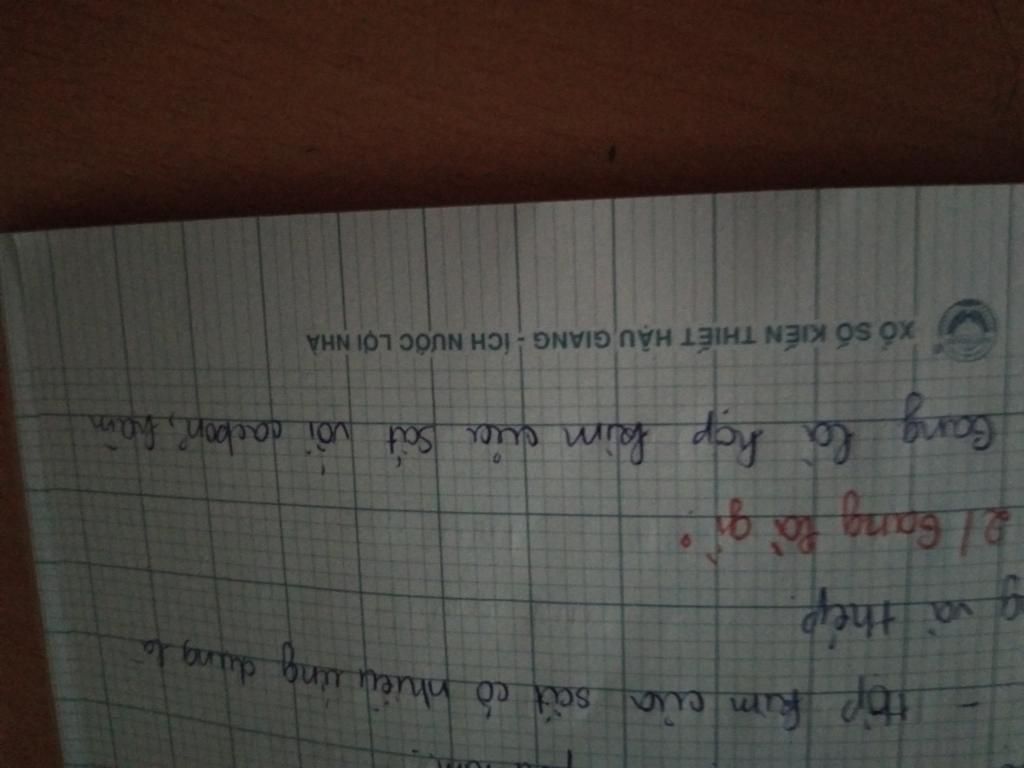 - Hợp kim của sắt có nhiều ứng dụng là
g và thép.
2/ Gang là gì?
Gang là hợp kim của sắt với cacbon, hàm
XỔ SỐ KIẾN THIẾT HẬU GIANG - ÍCH NƯỚC LỢI NHÀ